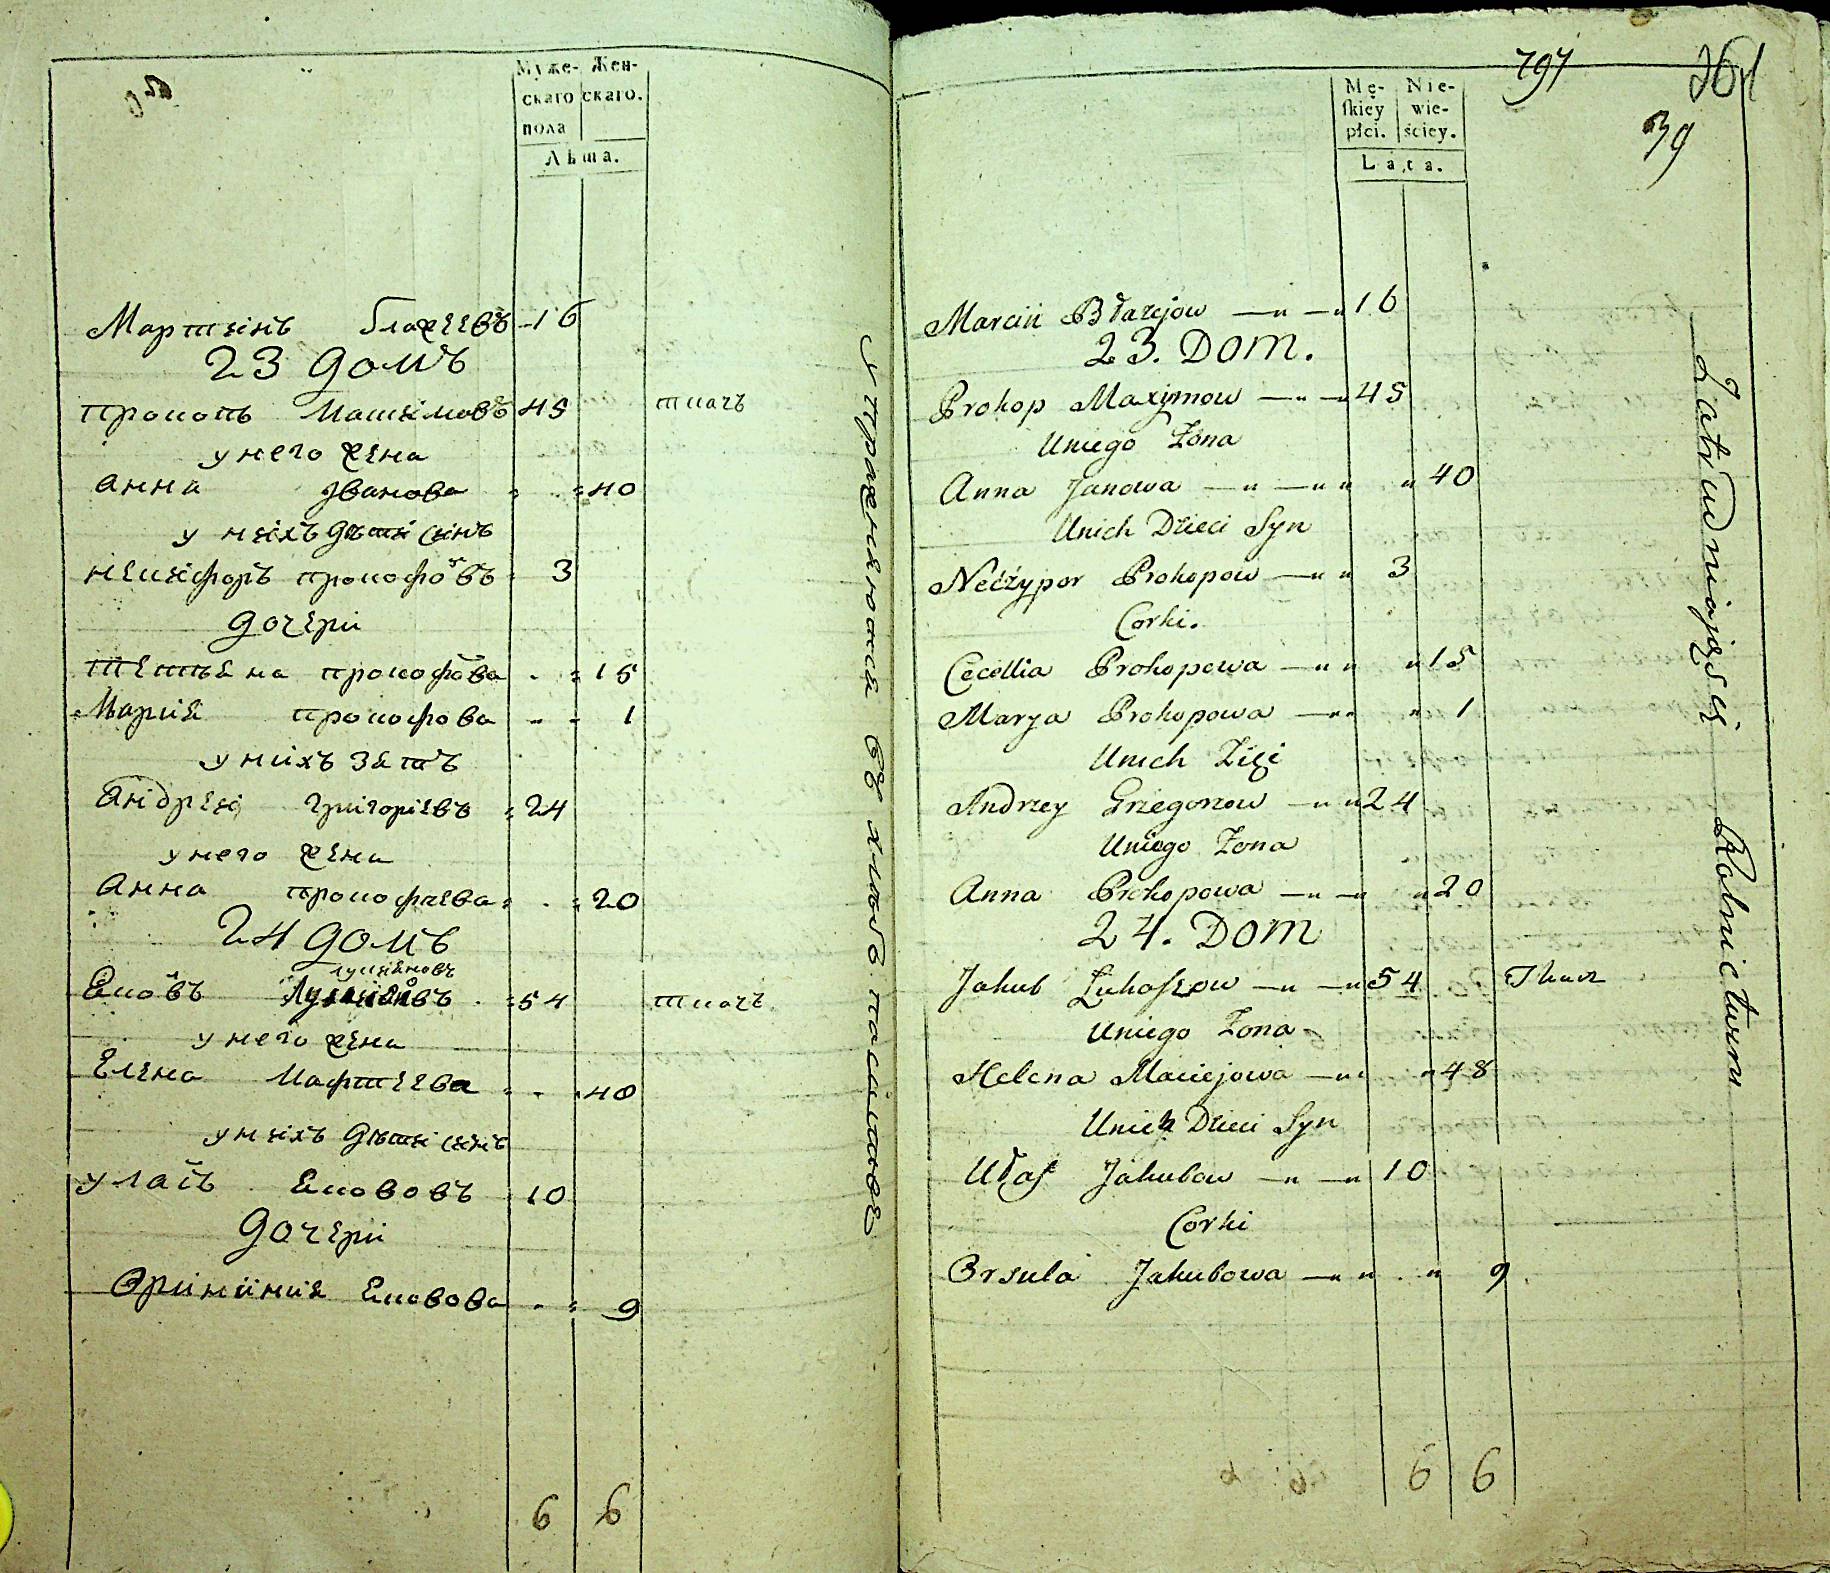 Муже- Жен-
скаго скаго.
пола
Лѣта.
Мартинъ Блажеевъ 16
23 домъ
Прокопъ Максимовъ 45 ткачъ
у него жена
Анна Иванова 40
у нихъ дѣти синъ
Никифоръ Прокофовъ 3
дочери
Тетьяна Прокофова 15
Мария Прокофова 1
у нихъ зять
Андрей Григориевъ 24
у него жена
Анна Прокофиева 20
24 домъ
Лукяновъ
Яковъ 54 ткачъ
у него жена
Елена Мафтеева 48
у нихъ дѣти синъ
Уласъ Яковов 10
дочери
Яковова 9
6 6
Упражняются въ хлѣбопашествѣ
797
39
Mę- Nie-
ſkiey wie-
płci. ściey.
Lata.
Marcin Błażejow 16
23. Dom.
Prokop Maxymow 45
Uniego Żona
Anna Janowa 40
Unich Dzieci Syn
Neczypor Prokopow 3
Corki.
Cecellia Prokopowa 15
Marya Prokopowa 1
Unich Zięć
Andrzey Grzegorzow 24
Uniego Zona
Anna Prokopowa 20
24. Dom
Jakub Łukaſzow 54 Tkacz
Uniego Zona
Helena Maciejowa 48
Unich Dzieci Syn
Ułas Jakubow 10
Corki
Orsula Jakubowa 9
6 6
Zatrudniający się Rolnictwem